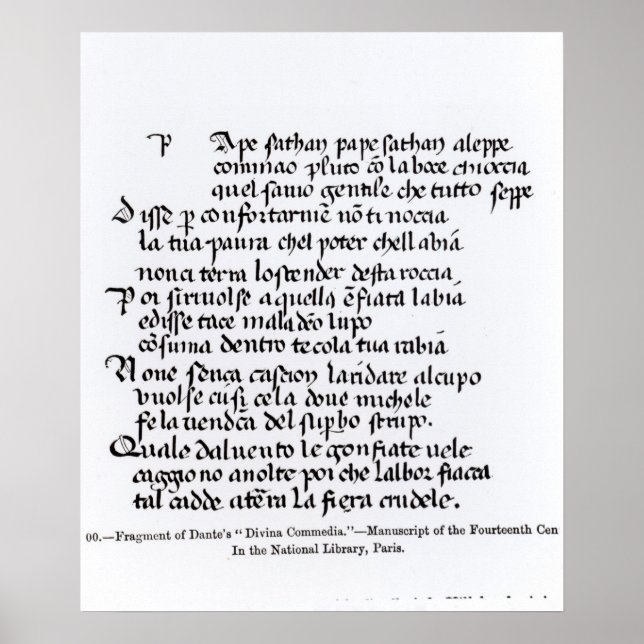 P Ape sathan pape sathan aleppe
cominao pluto cō la boce chioccia
quel savio gentile che tutto seppe
Disse p confortarmē nō ti noccia
la tua paura chel poter chell abiá
non ci terra lo scender desta roccia
Poi si rivolse a quella ēfiata labiá
e disse tace maladeō lupo
cōsuma dentro te cola tua rabiá
None senca cascion landare al cupo
vuolse cusi ce la dove michele
fe la vendca del supbo strupo.
Quale dal vento le gonfiate vele
caggiono avolte poi che lalbor fiacca
tal cadde atēra la fiera crudele.
00.—Fragment of Dante's "Divina Commedia."—Manuscript of the Fourteenth Cen
In the National Library, Paris.